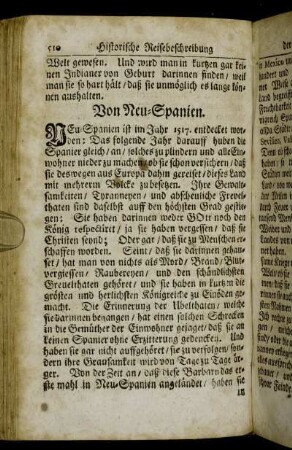 510 Historische Reisebeschreibung
Welt gewesen. Und wird man in kurtzen gar kei-
nen Indianer von Geburt darinnen finden/ weil
man sie so hart hält/ daß sie unmöglich es lange kön-
nen aushalten.
Von Neu-Spanien.
NEu-Spanien ist im Jahr 1517. entdecket wor-
den: Das folgende Jahr darauf huben die
Spanier gleich/ an/ solches zu plündern und alle Ein-
wohner nieder zu machen/ ob sie schon versichern/ daß
sie deswegen aus Europa dahin gereiset/ dieses Land
mit mehrerm Volcke zu besetzen. Ihre Gewalt-
samkeiten/ Tyranneyen/ und abscheuliche Frevel-
thaten sind daselbst auf den höchsten Grad gestie-
gen: Sie haben darinnen weder GOtt noch den
König respectiret/ ja sie haben vergessen/ daß sie
Christen seynd; Oder gar/ daß sie zu Menschen er-
schaffen worden. Seint/ daß sie darinnen gehau-
set/ hat man von nichts als Mord/ Brand/ Blut-
vergiessen/ Raubereyen/ und den schändlichsten
Greuelthaten gehöret/ und sie haben in kurtzem die
grösten und herlichsten Königreiche zu Einöden ge-
macht. Die Erinnerung der Ubelthaten/ welche
sie darinnen begangen/ hat einen solchen Schrecken
in die Gemüther der Einwohner gejaget/ daß sie an
keinen Spanier ohne Erzitterung gedencken. Und
haben sie gar nicht aufgehöret/ sie zu verfolgen/ son-
dern ihre Grausamkeit wird von Tage zu Tage är-
ger. Von der Zeit an/ daß diese Barbarn das er-
ste mahl in Neu-Spanien angeländet/ haben sie